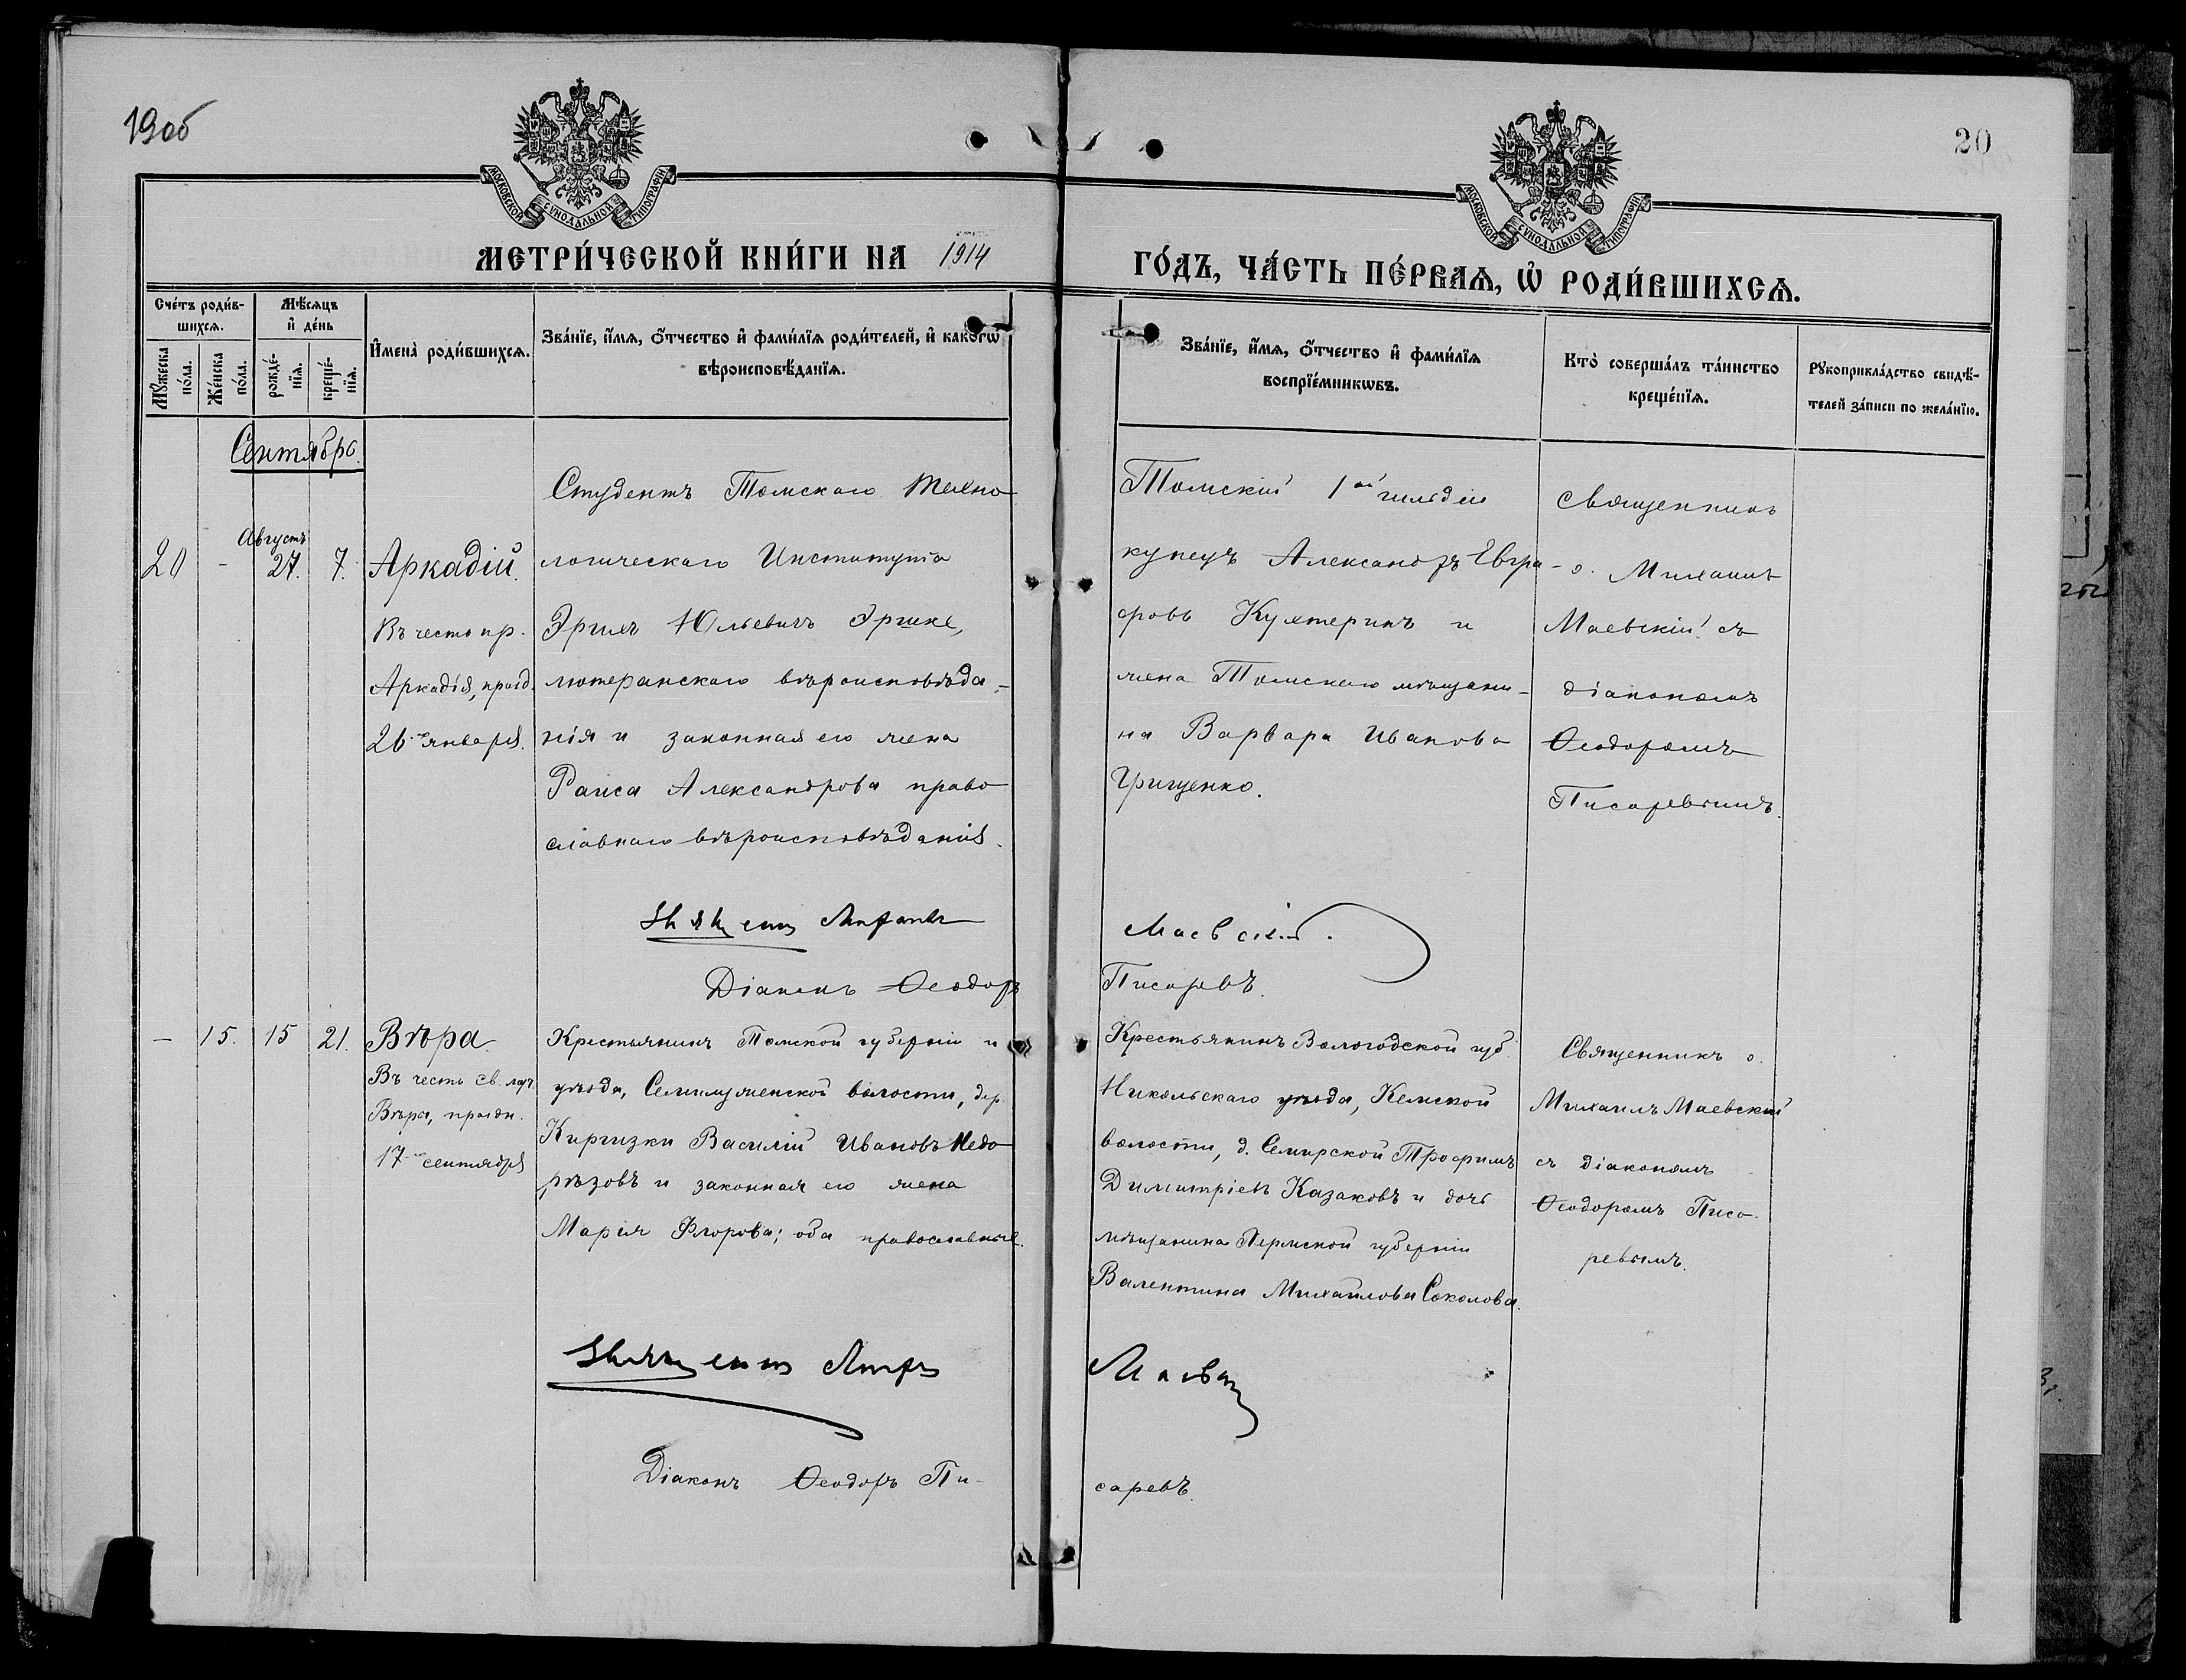 19об
20
МОСКОВСКОЙ СѴНОДАЛЬНОЙ ТИПОГРАФІИ
МОСКОВСКОЙ СѴНОДАЛЬНОЙ ТИПОГРАФІИ
МЕТРИ́ЧЕСКОЙ КНИ́ГИ НА 1914
ГО́ДЪ, ЧА́СТЬ ПЕ́РВАѦ, Ѡ҆ РОДИ́ВШИХСѦ.
Сче́тъ роди́в-
шихсѧ.
Мѣ́сѧцъ
и҆ де́нь
Мꙋ́жеска
по́ла.
Же́нска
по́ла.
рожде́-
нїѧ.
креще́-
нїѧ.
И҆мена̀ роди́вшихсѧ.
Зва́нїе, и҆́мѧ, ѻ҆́тчество и҆ фами́лїѧ роди́телей, и҆ како́гѡ
вѣроисповѣ́данїѧ.
Зва́нїе, и҆́мѧ, ѻ҆́тчество и҆ фами́лїѧ
воспрїе́мникѡвъ.
Кто̀ соверша́лъ та́инство
креще́нїѧ.
Рꙋкоприкла́дство свидѣ́-
телей за́писи по жела́нїю.
Сентябрь.
20
-
Августъ
27.
7.
Аркадій.
Въ честь пр.
Аркадія, празд.
26го января.
Студентъ Томскаго Техно
логическаго Института
Эрихъ Юльевичъ Эришке,
лютеранскаго вѣроисповѣда-
нія и законная его жена
Раиса Александрова право
славнаго вѣроисповѣданія.
Томскій 1ой гильдіи
купецъ Александръ Евгра-
фовъ Кухтеринъ и
жена Томскаго мѣщани-
на Варвара Иванова
Грищенко.
Священникъ
о. Михаилъ
Маевскій съ
діакономъ
Ѳеодоромъ
Писаревымъ.
Священникъ Михаилъ Маевскій.
Діаконъ Ѳеодоръ Писаревъ.
-
15.
15
21.
Вѣра.
Въ честь св. муч.
Вѣры, праздн.
17го сентября
Крестьянинъ Томской губерніи и
уѣзда, Семилуженской волости, дер.
Киргизки Василій Ивановъ Недо
рѣзовъ и законная его жена
Марія Флорова; оба православные.
Крестьянинъ Вологодской губ.
Никольскаго уѣзда, Кемской
волости, д. Семирской Трофимъ
Димитріевъ Казаковъ и дочь
мѣщанина Пермской губерніи
Валентина Михайлова Соколова.
Священникъ о.
Михаилъ Маевскій
съ діакономъ
Ѳеодоромъ Писа-
ревымъ.
Священникъ Маевскій
Діаконъ Ѳеодоръ Пи-
саревъ.